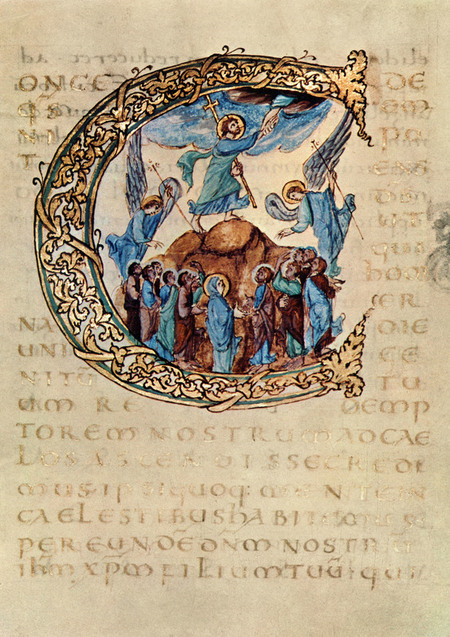 CONCE DE
QS OM
NI PO
T ENS
DS
UT
QUI
HODI
ER
NA DIE
UNI GE
NITŪ TU
UM REDEMP
TOREM NOSTRUM AD CAE
LOS ASCENDISSE CREDI
MUS IPSI QUOQ MENTE IN
CAELESTIBUS HABITEMUS
PER EUNDE DNM NOSTRU
IHM XPM FILIUM TUU QUI